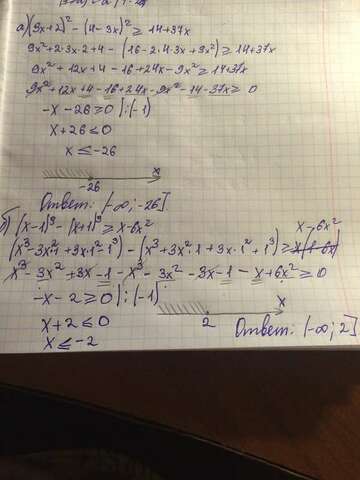 а) (3x+2)² - (4-3x)² ≥ 14+37x
9x²+2·3x·2+4 - (16-2·4·3x+9x²) ≥ 14+37x
9x²+12x+4-16+24x-9x² ≥ 14+37x
9x²+12x+4-16+24x-9x²-14-37x ≥ 0
-x-26 ≥ 0 |:(-1)
x+26 ≤ 0
x ≤ -26
-26 x
Ответ: (-∞; -26]
б) (x-1)³ - (x+1)³ ≥ x-6x²
x-6x²
(x³-3x²·1+3x·1²-1³) - (x³+3x²·1+3x·1²+1³) ≥
x³-3x²+3x-1-x³-3x²-3x-1-x+6x² ≥ 0
-x-2 ≥ 0 |:(-1)
x+2 ≤ 0
x ≤ -2
2 x
Ответ: (-∞; 2]